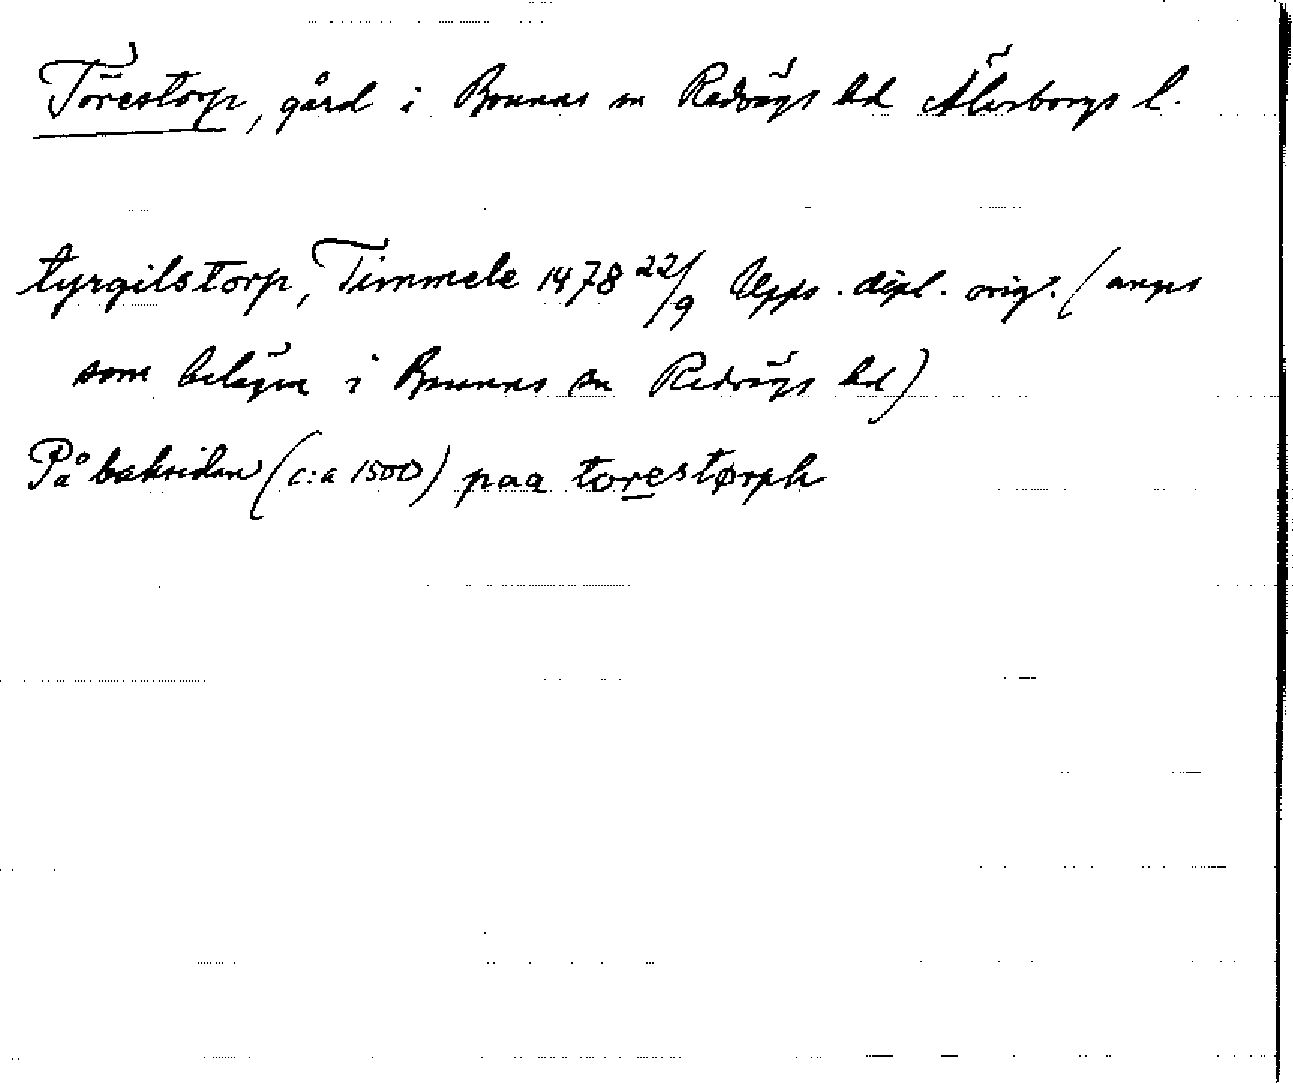 Törestorp, gård i Brunns sn Redvägs hd Älvsborgs l.
tyrgilstorp, Timmele 1478 22/9 Upps. dipl. orig. (anges
som belägen i Brunns sn Redvägs hd)
På baksidan (c:a 1500) paa torestørph